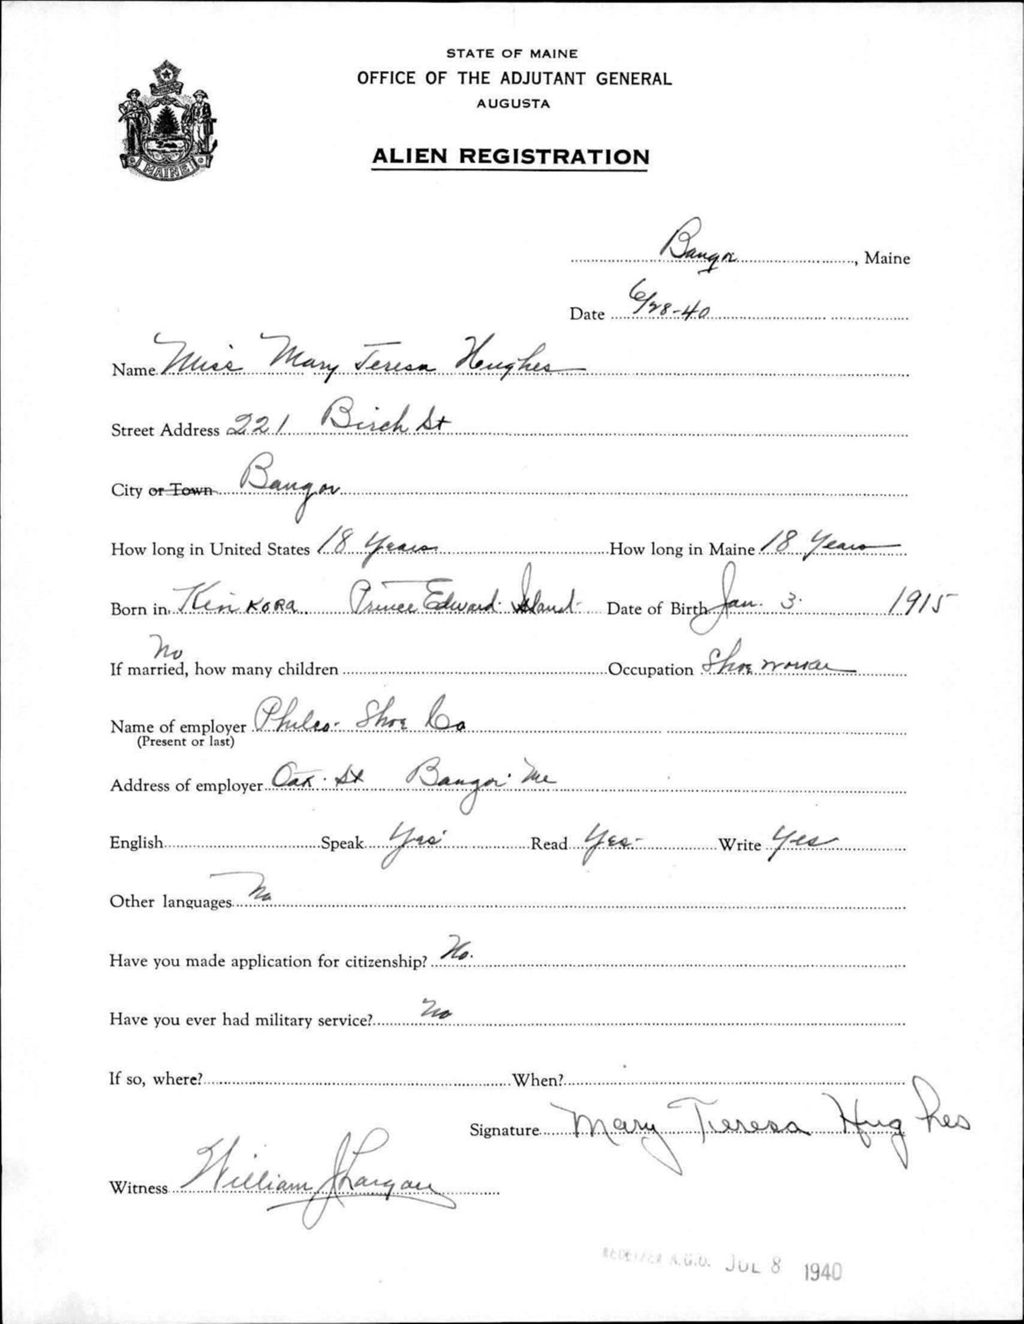 STATE OF MAINE
OFFICE OF THE ADJUTANT GENERAL
AUGUSTA
MAINE
ALIEN REGISTRATION
Bangor, Maine
Date 6/28-40
Name Miss Mary Teresa Hughes
Street Address 221 Birch St
City or Town Bangor
How long in United States 18 Years How long in Maine 18 Years
Born in Kinkora Prince Edward Island Date of Birth Jan. 3 1915
No
If married, how many children Occupation Shoe worker
Name of employer Philco Shoe Co
(Present or last)
Address of employer Oak St Bangor Me
English Speak Yes Read Yes Write Yes
Other languages No
Have you made application for citizenship? No.
Have you ever had military service? No
If so, where? When?
Signature Mary Teresa Hughes
Witness William J
RECEIVED A.G.O. JUL 8 1940